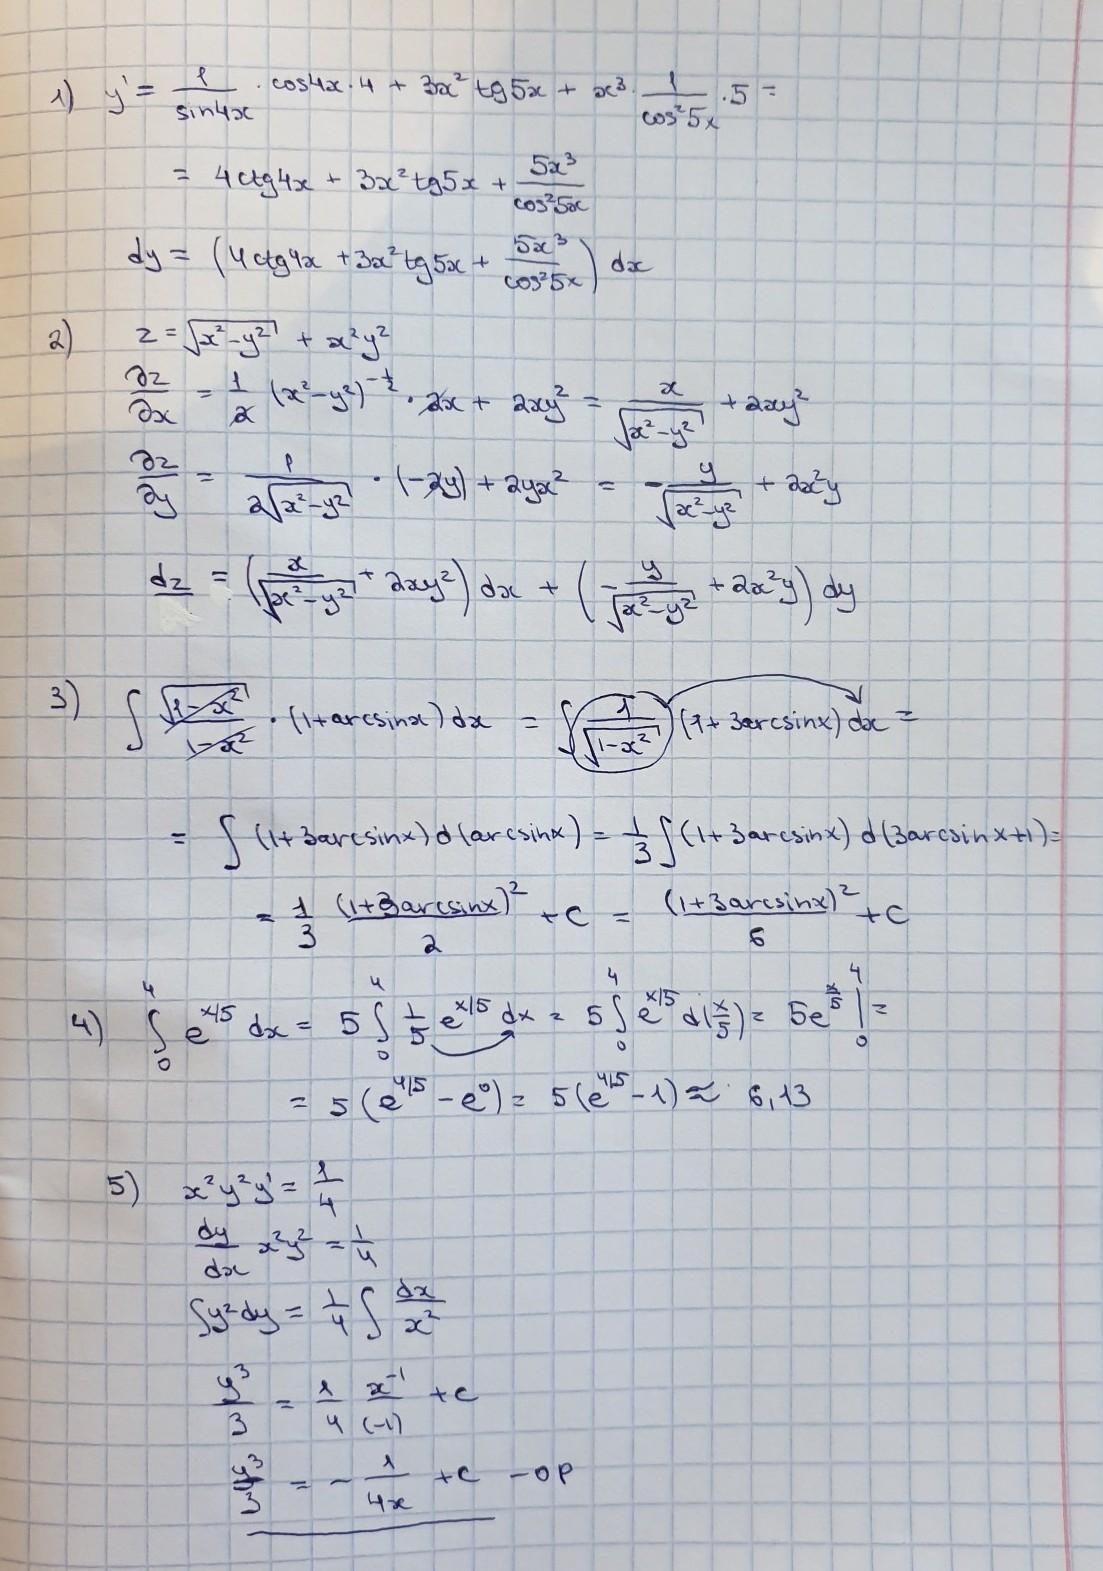 1) y' = 1/sin4x · cos4x·4 + 3x² tg5x + x³· 1/cos²5x ·5 =
= 4ctg4x + 3x² tg5x + 5x³/cos²5x
dy = (4ctg4x + 3x² tg5x + 5x³/cos²5x) dx
2) z = √(x²-y²) + x²y²
∂z/∂x = 1/2 (x²-y²)^(-1/2) · 2x + 2xy² = x/√(x²-y²) + 2xy²
∂z/∂y = 1/(2√(x²-y²)) · (-2y) + 2yx² = - y/√(x²-y²) + 2x²y
dz = (x/√(x²-y²) + 2xy²) dx + (- y/√(x²-y²) + 2x²y) dy
3) ∫ √(1-x²)/(1-x²) · (1+arcsinx) dx = ∫ 1/√(1-x²) (1+3arcsinx) dx =
= ∫ (1+3arcsinx) d(arcsinx) = 1/3 ∫ (1+3arcsinx) d(3arcsinx+1) =
= 1/3 (1+3arcsinx)²/2 + C = (1+3arcsinx)²/6 + C
4) ∫₀⁴ e^(x/5) dx = 5 ∫₀⁴ 1/5 e^(x/5) dx = 5 ∫₀⁴ e^(x/5) d(x/5) = 5e^(x/5) |₀⁴ =
= 5 (e^(4/5) - e⁰) = 5(e^(4/5) - 1) ≈ 6,13
5) x²y²y' = 1/4
dy/dx x²y² = 1/4
∫y²dy = 1/4 ∫ dx/x²
y³/3 = 1/4 x⁻¹/(-1) + c
y³/3 = - 1/4x + c - ОР